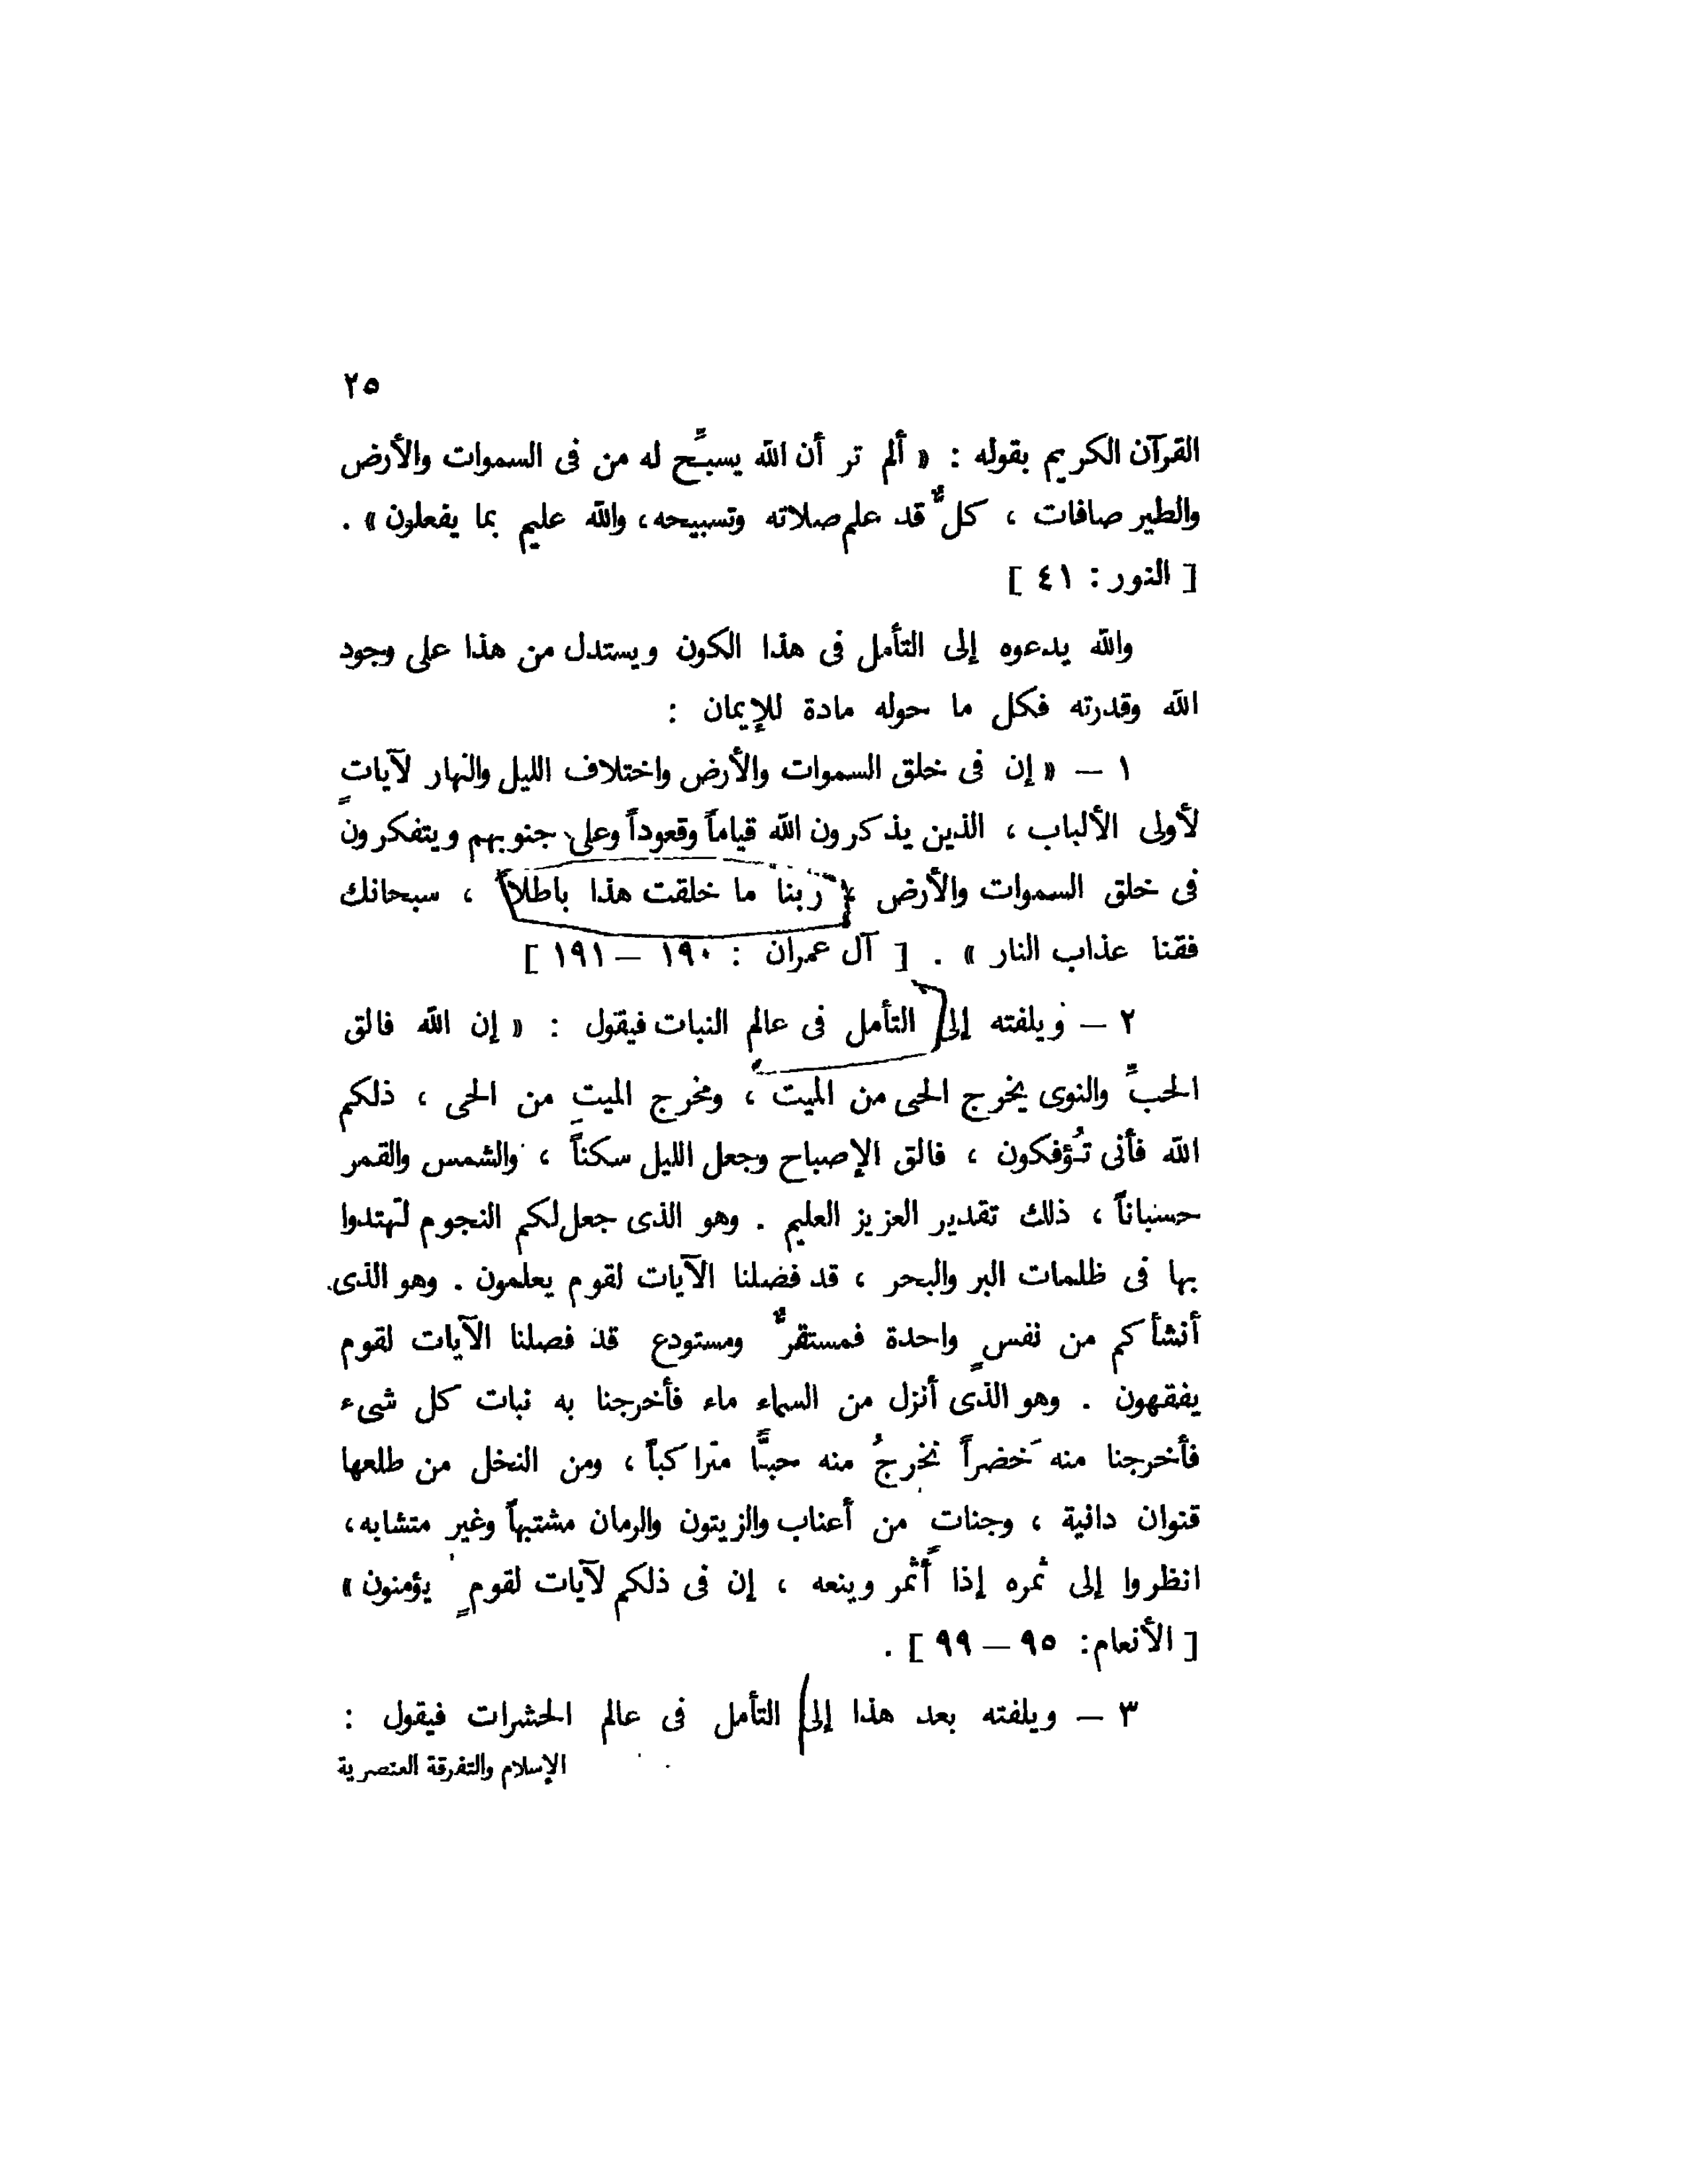 ٢٥
القرآن الكريم بقوله : « ألم تر أن الله يسبِّح له من فى السموات والأرض
والطير صافات ، كلٌّ قد علم صلاته وتسبيحه، والله عليم بما يفعلون » .
[ النور : ٤١ ]
والله يدعوه إلى التأمل فى هذا الكون ويستدل من هذا على وجود
الله وقدرته فكل ما حوله مادة للإيمان :
١ — « إن فى خلق السموات والأرض واختلاف الليل والنهار لآياتٍ
لأولى الألباب ، الذين يذكرون الله قياماً وقعوداً وعلى جنوبهم ويتفكرون
فى خلق السموات والأرض ربنا ما خلقت هذا باطلاً ، سبحانك
فقنا عذاب النار » . [ آل عمران : ١٩٠ — ١٩١ ]
٢ — ويلفته إلى التأمل فى عالم النبات فيقول : « إن الله فالق
الحبِّ والنوى يخرج الحى من الميت ، ومخرج الميتِ من الحى ، ذلكم
الله فأنى تُؤفكون ، فالق الإصباح وجعل الليل سكناً ، والشمس والقمر
حسباناً ، ذلك تقدير العزيز العليم . وهو الذى جعل لكم النجوم لتهتدوا
بها فى ظلمات البر والبحر ، قد فصلنا الآيات لقوم يعلمون . وهو الذى
أنشأكم من نفسٍ واحدة فمستقرٌّ ومستودع قد فصلنا الآيات لقوم
يفقهون . وهو الذى أنزل من السماء ماء فأخرجنا به نبات كل شىء
فأخرجنا منه خَضراً نخرجُ منه حبًّا متراكباً ، ومن النخل من طلعها
قنوان دانية ، وجناتٍ من أعناب والزيتون والرمان مشتبهاً وغير متشابه،
انظروا إلى ثمره إذا أثمر وينعه ، إن فى ذلكم لآيات لقومٍ يؤمنون »
[ الأنعام: ٩٥ — ٩٩ ] .
٣ — ويلفته بعد هذا إلى التأمل فى عالم الحشرات فيقول :
الإسلام والتفرقة العنصرية